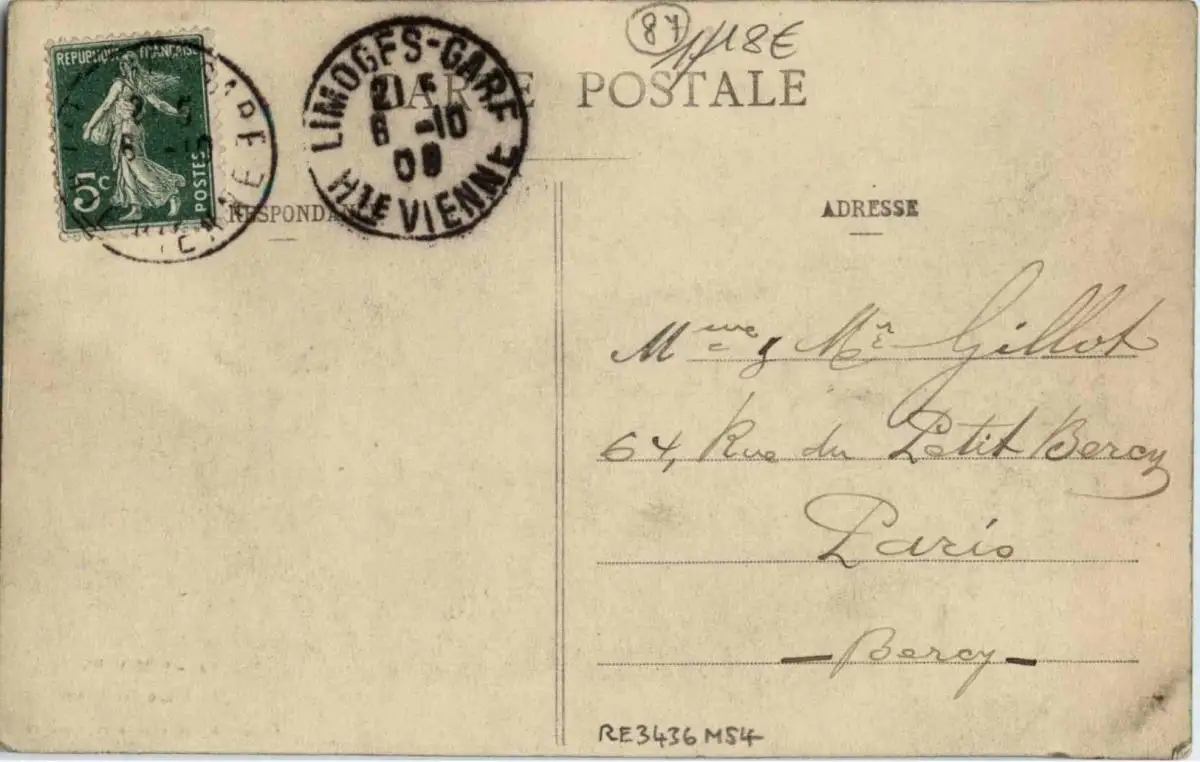 87
18E
REPUBLIQUE FRANÇAISE
5c
POSTES
LIMOGES-GARE
6 -10
09
HTE VIENNE
CARTE POSTALE
CORRESPONDANCE
ADRESSE
Mme & Mr Gillot
64, Rue du Petit Bercy
Paris
— Bercy —
RE3436 M54